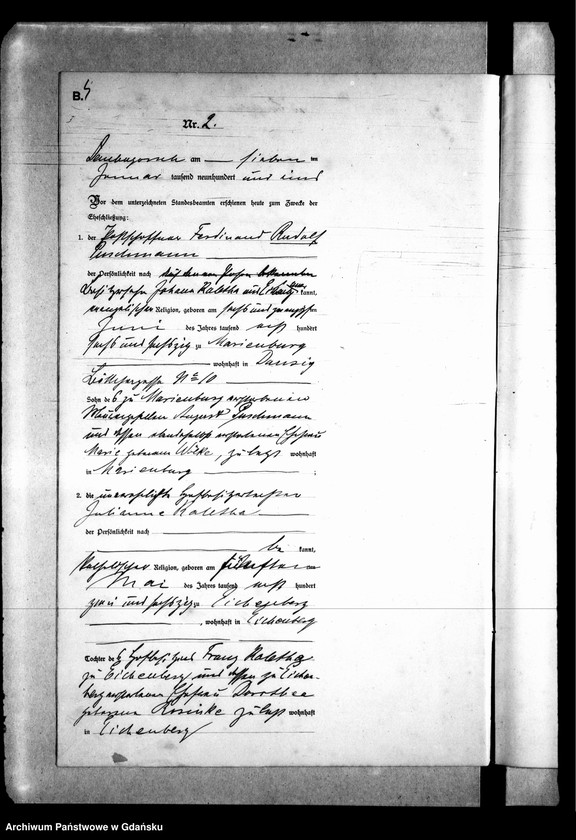 B.
Nr. 2.
am — sieben im
Januar tausend neunhundert und eins
Vor dem unterzeichneten Standesbeamten erschienen heute zum Zwecke der
Eheschließung:
1. der Postschaffner Ferdinand Rudolf
Puschmann
der Persönlichkeit nach
Besitzersohn Johann Kaletha aus kannt,
evangelischer Religion, geboren am sechsundzwanzigsten
Juni des Jahres tausend acht hundert
sechs und sechszig zu Marienburg
wohnhaft in Danzig
Böttchergasse No 10
Sohn des zu Marienburg verstorbenen
Maurergesellen August Puschmann
und dessen ebendaselbst verstorbenen Ehefrau
Marie geborenen Wilke, zuletzt wohnhaft
in Marienburg ;
2. die unverehelichte Hofbesitzertochter
Julianna Kaletha
der Persönlichkeit nach
be kannt,
katholischer Religion, geboren am
Mai des Jahres tausend acht hundert
zwei und sechszig zu Eichenberg
, wohnhaft in Eichenberg
Tochter des Hofbesitzers Franz Kaletha
zu Eichenberg und dessen zu Eichen-
berg verstorbenen Ehefrau Dorothea
geborenen zuletzt wohnhaft
in Eichenberg
Archiwum Państwowe w Gdańsku